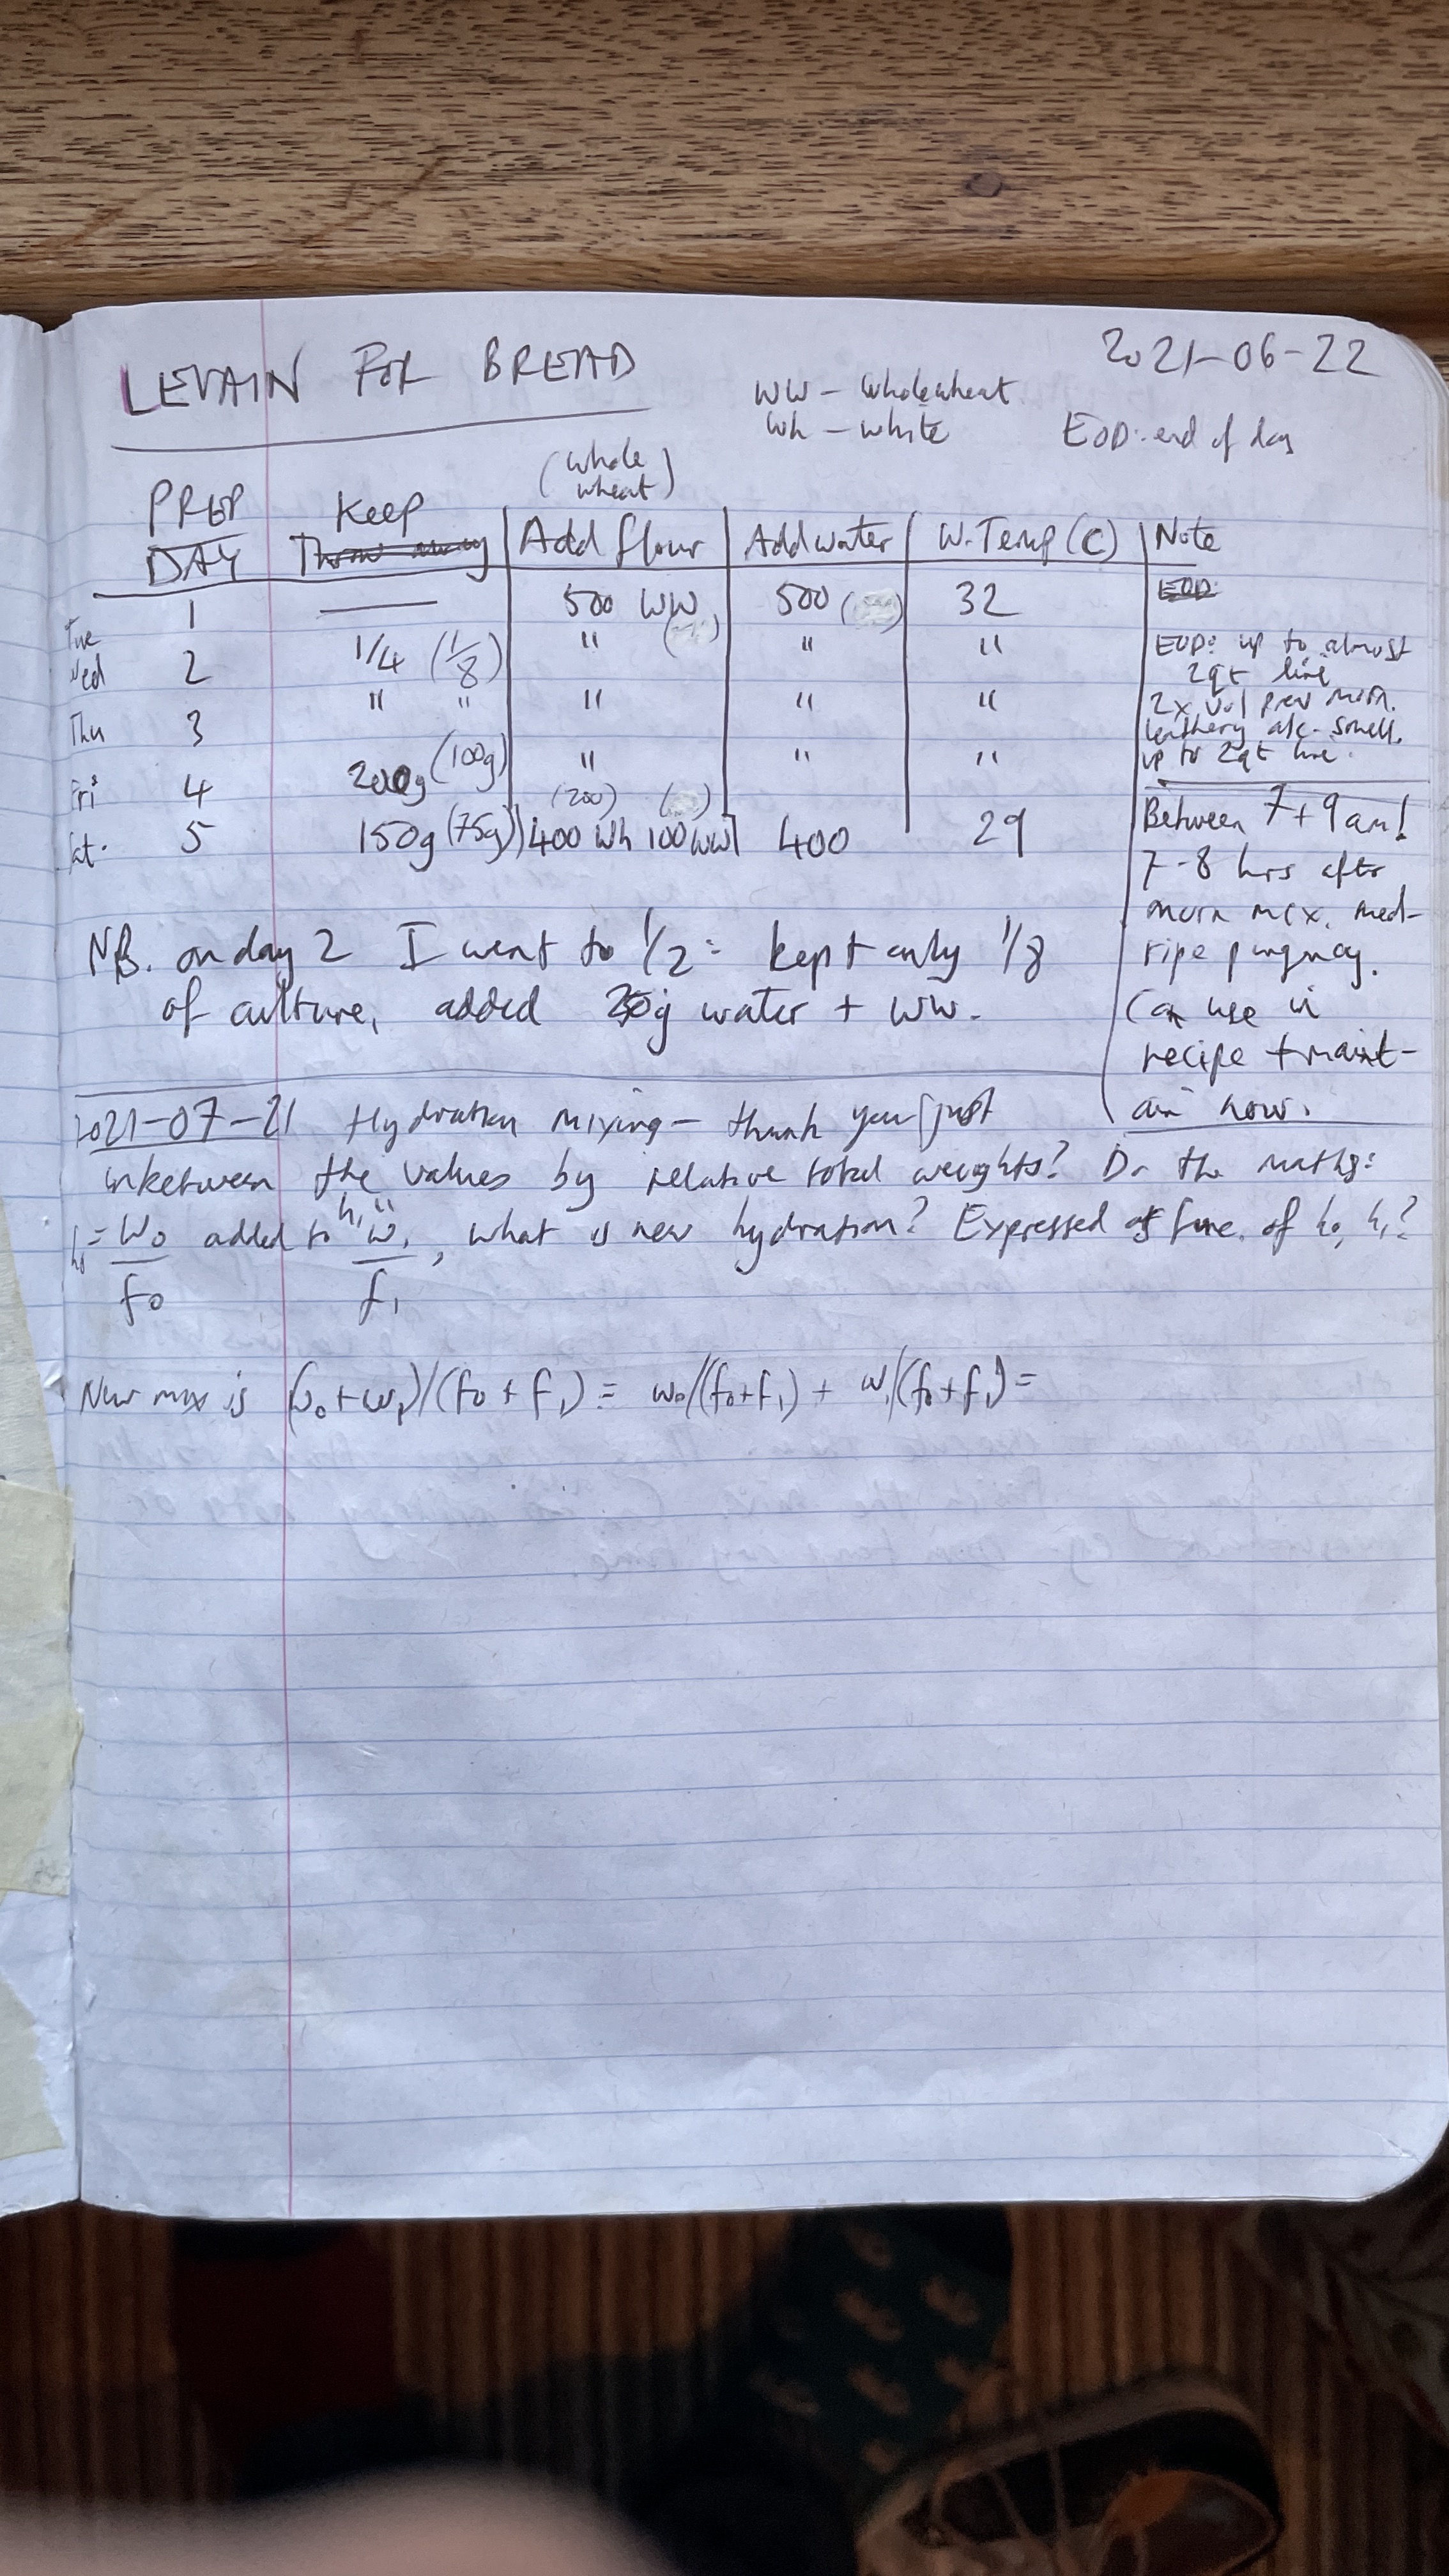 LEVAIN FOR BREAD
2021-06-22
WW - Wholewheat
Wh - White
EOD: end of day
(whole wheat)
PREP DAY | Keep | Add flour | Add water | W. Temp (C) | Note
1 | — | 500 WW | 500 | 32
Tue
Wed 2 | 1/4 (1/8) | " | " | " | EOD: up to almost
2qt line
Thu 3 | " " | " | " | " | 2x vol prev morn.
leathery alc. smell.
up to 2qt line.
Fri 4 | 200g (100g) | " | " | "
(200)
Sat. 5 | 150g (75g) | 400 Wh 100 WW | 400 | 29 | Between 7+9am!
7-8 hrs after
morn mix. med-
ripe pungency.
Can use in
recipe + maint-
ain now.
NB. on day 2 I went to 1/2: kept only 1/8
of culture, added g water + WW.
2021-07-21 Hydration mixing - thank you just
inbetween the values by relative total weights? Do the maths:
h0 = w0/f0 added to h1 " w1/f1, what is new hydration? Expressed as func. of h0, h1?
New mix is (w0+w1)/(f0+f1) = w0/(f0+f1) + w1/(f0+f1) =